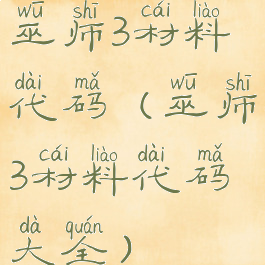 wū shī cái liào
巫师3材料
dài mǎ wū shī
代码(巫师
cái liào dài mǎ
3材料代码
dà quán
大全)